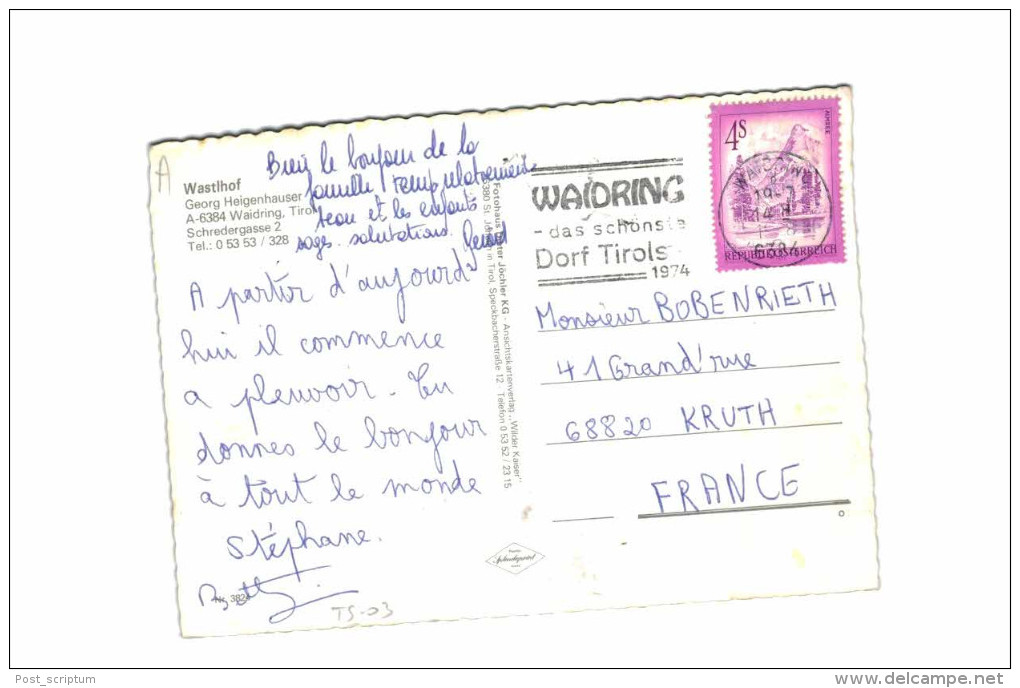 A
Wastlhof
Georg Heigenhauser
A-6384 Waidring, Tirol
Schredergasse 2
Tel.: 0 53 53 / 328
le bonjour de la
famille
et les enfants
sages. salutations
A partir d'aujourd
hui il commence
a pleuvoir. Tu
donnes le bonjour
à tout le monde
Stéphane.
Nr. 3824
TS-03
Fotohaus Jöchler KG - Ansichtskartenverlag "Wilder Kaiser"
6380 St. in Tirol, Speckbacherstraße 12 - Telefon 0 53 52 / 23 15
WAIDRING
- das schönste
Dorf Tirols
1974
4S
ALMSEE
REPUBLIK ÖSTERREICH
6384
Monsieur BOBENRIETH
41 Grand'rue
68820 KRUTH
FRANCE
Post_scriptum
www.delcampe.net